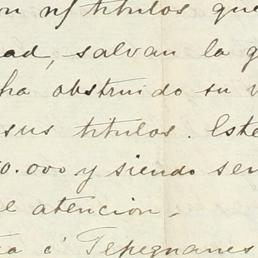 on n/ titulos que
ad, salvan la g
ha obstruido su v
sus titulos. Este
0.000 y siendo sen
e atencion.-
é Tepegnanes